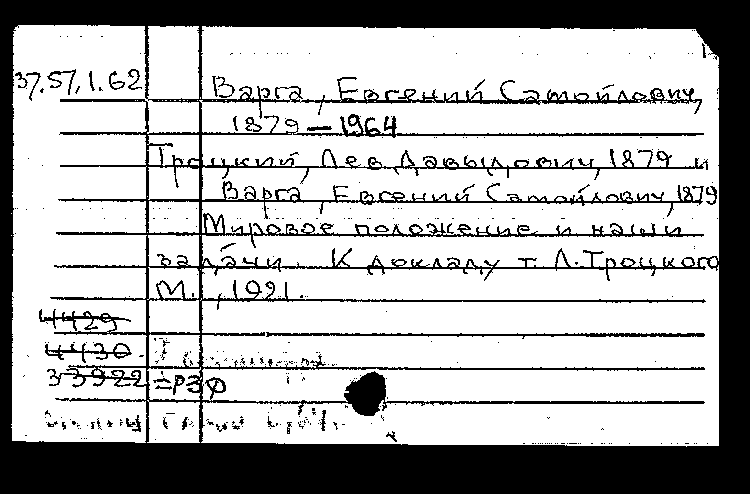 37.57.1.62
Варга, Евгений Самойлович,
1879 — 1964
Троцкий, Лев Давыдович, 1879 и
Варга, Евгений Самойлович, 1879
Мировое положение и наши
задачи. К докладу т. Л. Троцкого
М., 1921.
4429
4430
33922 =РЗФ